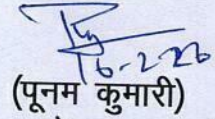 16-2-26
(पूनम कुमारी)